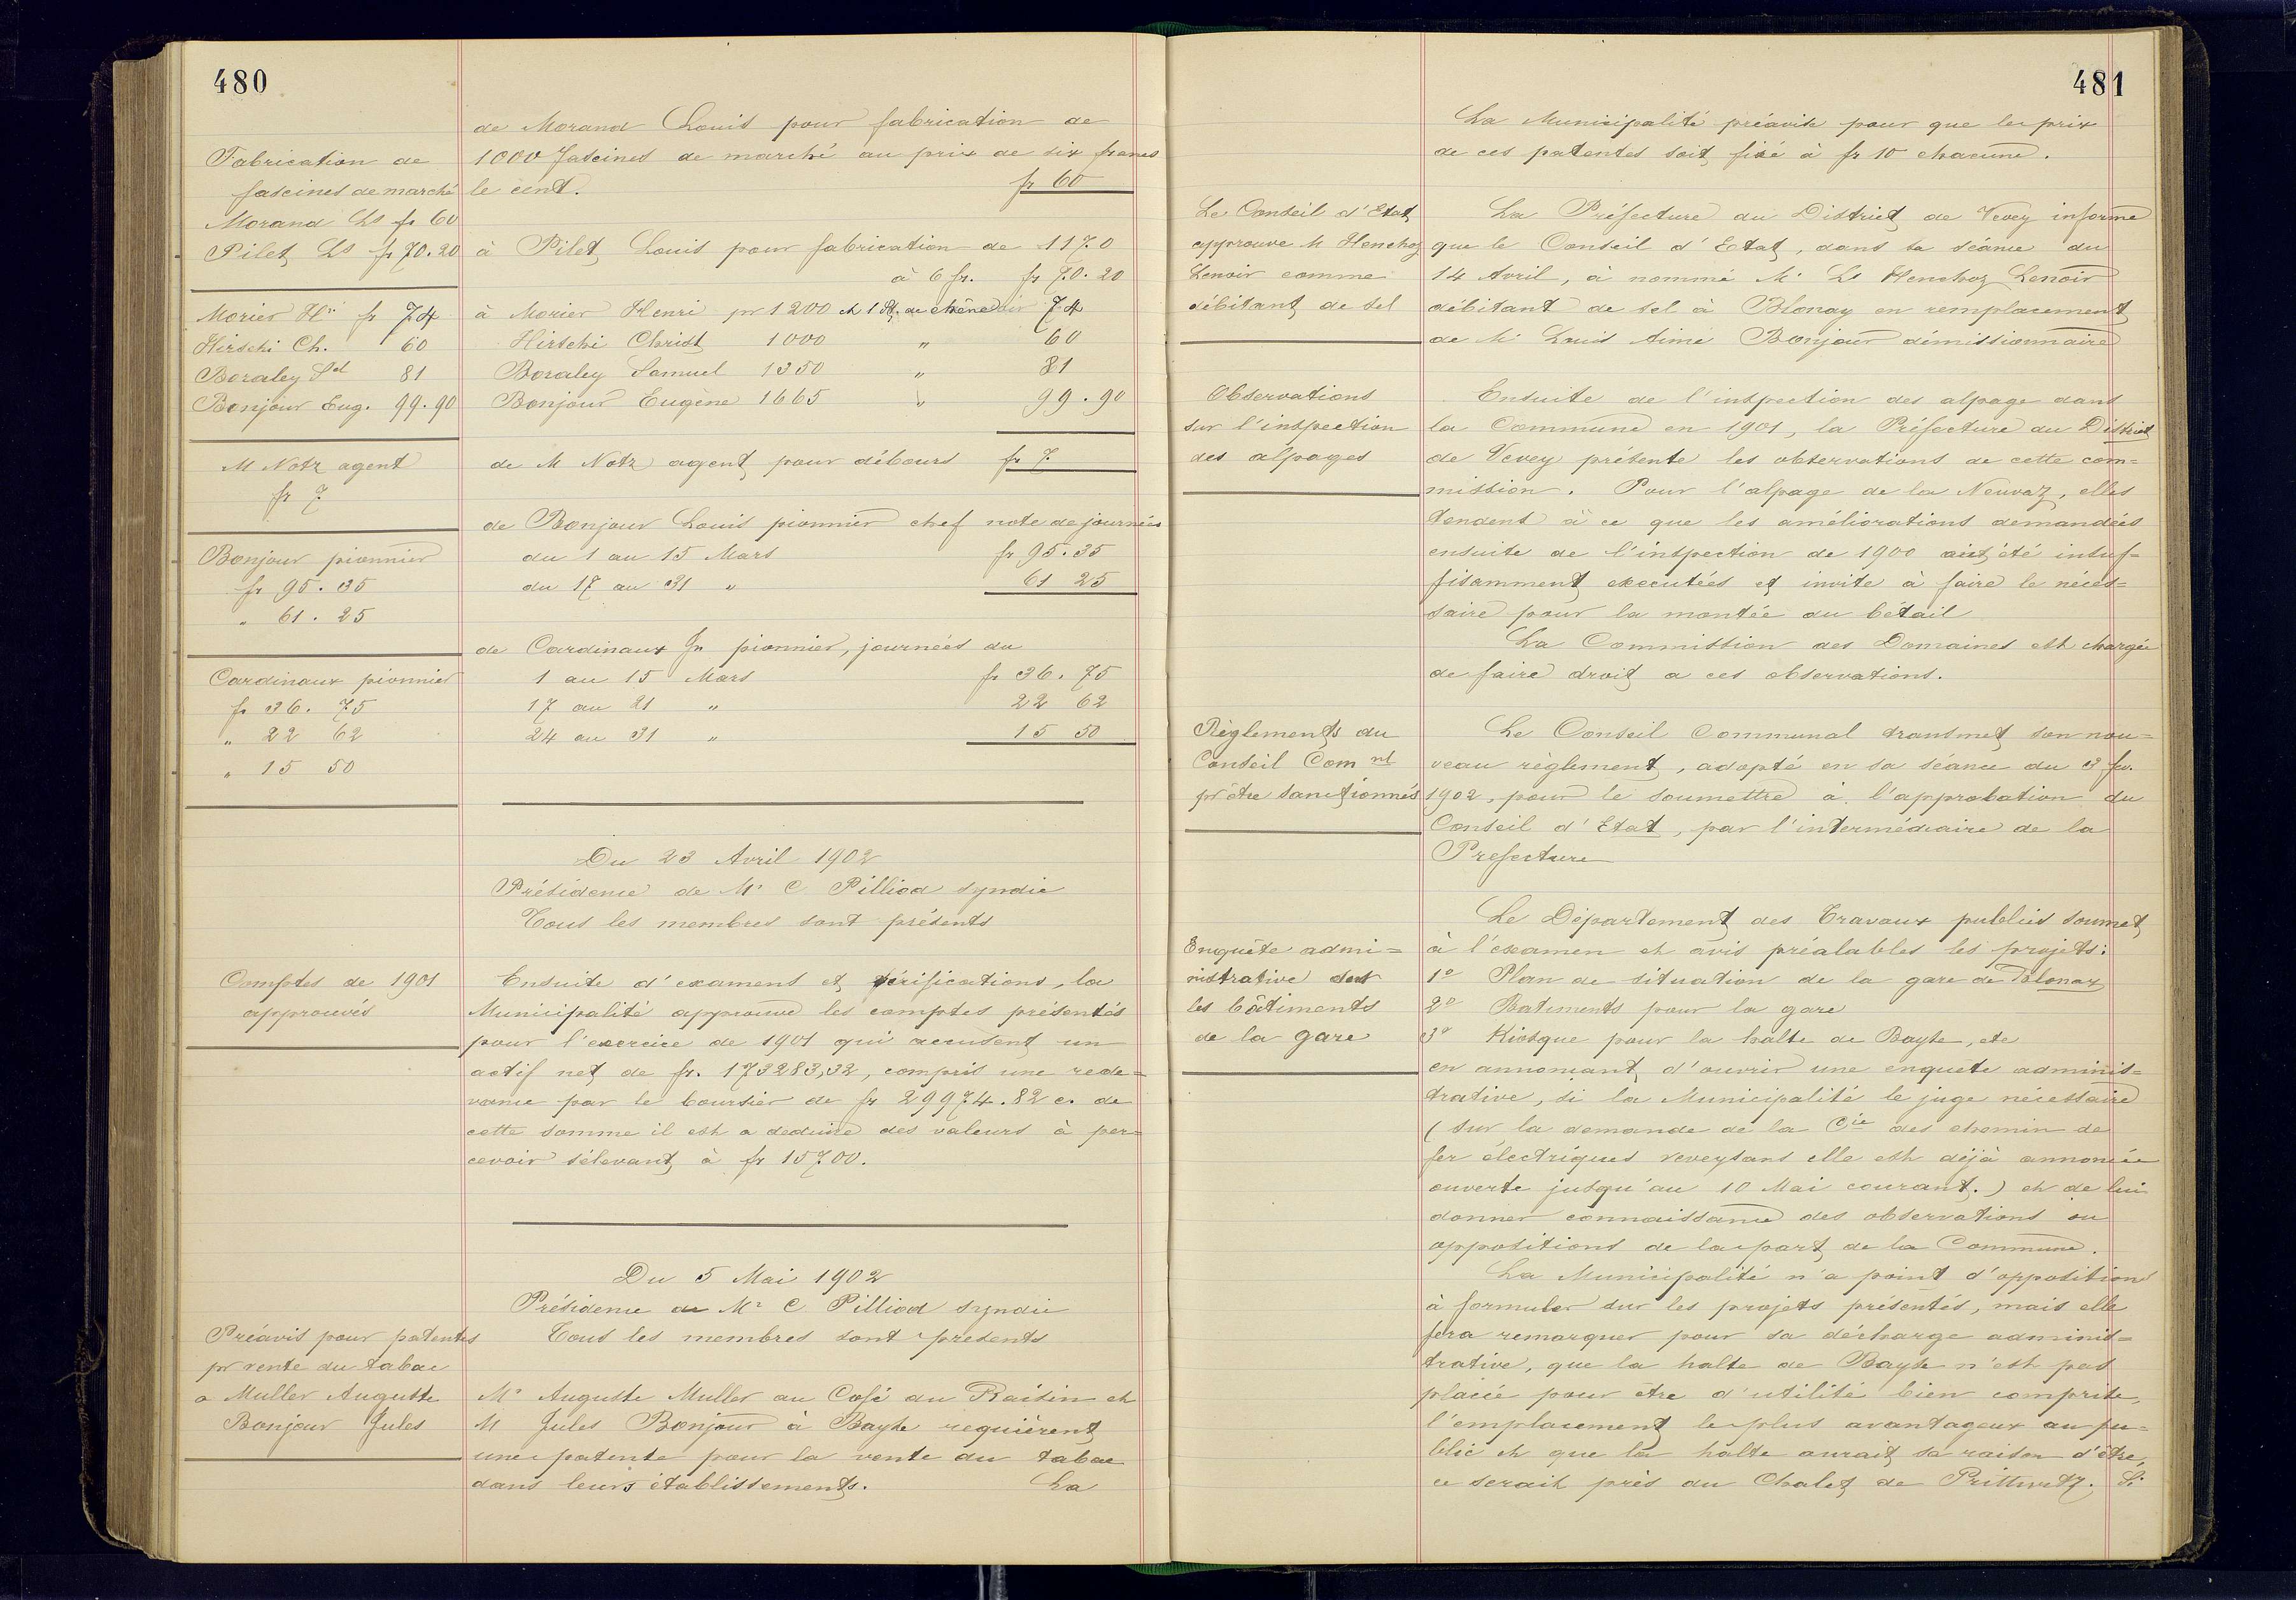 480
de Morand Louis pour fabrication de
Fabrication de
1000 fascines de marché au prix de six francs
fascines de marché
le cent. fr 60
Morand Ls fr 60
Pilet Ls fr 70.20
à Pilet Louis pour fabrication de 1170
à 6 fr. fr 70.20
Morier Hri fr 74
Hirschi Ch. 60
Boraley Sel 81
Bonjour Eug. 99.90
à Morier Henri pr 1200 et 1 St. de chêne 74
Hirschi Christ 1000 " 60
Boraley Samuel 1350 " 81
Bonjour Eugène 1665 " 99.90
M Notz agent
fr 7
de M Notz agent pour débours fr 7
Bonjour pionnier
fr 95.35
" 61.25
de Bonjour Louis pionnier chef note de journées
du 1 au 15 Mars fr 95.35
du 17 au 31 " 61 25
Cardinaux pionnier
fr 36.75
" 22 62
" 15 50
de Cardinaux Jn pionnier, journées du
1 au 15 Mars fr 36.75
17 au 21 " 22 62
24 au 31 " 15 50
Du 23 Avril 1902
Présidence de Mr C. Pilliod syndic
Tous les membres sont présents
Comptes de 1901
approuvés
Ensuite d'examens et vérifications, la
Municipalité approuve les comptes présentés
pour l'exercice de 1901 qui accusent un
actif net de fr. 173283,32, compris une rede=
vance par le boursier de fr 29974.82 c. de
cette somme il est a déduire des valeurs à per=
cevoir s'élevant à fr 15700.
Du 5 Mai 1902
Présidence de Mr C Pilliod syndic
Tous les membres sont présents
Préavis pour patentes
pr vente du tabac
a Muller Auguste
Bonjour Jules
Mr Auguste Muller au Café du Raisin et
M Jules Bonjour à Bayse requièrent
une patente pour la vente du tabac
dans leurs établissements. La
481
La Municipalité préavise pour que le prix
de ces patentes soit fixé à fr 10 chacune.
Le Conseil d'Etat
approuve M Henchoz
Lenoir comme
débitant de sel
La Préfecture du District de Vevey informe
que le Conseil d'Etat, dans sa séance du
14 Avril, à nommé Mr Ls Henchoz Lenoir
débitant de sel à Blonay en remplacement
de Mr Louis Aimé Bonjour démissionnaire
Observations
sur l'inspection
des alpages
Ensuite de l'inspection des alpage dans
la Commune en 1901, la Préfecture du District
de Vevey présente les observations de cette com=
mission. Pour l'alpage de la Neuvaz, elles
tendent à ce que les améliorations demandées
ensuite de l'inspection de 1900 ait été insuf=
fisamment executées et invite à faire le néces=
saire pour la montée du bétail
La Commission des Domaines est chargée
de faire droit a ces observations.
Règlements du
Conseil Com nl
pr être sanctionnés
Le Conseil Communal transmet son nou=
veau règlement, adopté en sa séance du 3 fev.
1902, pour le soumettre à l'approbation du
Conseil d'Etat, par l'intermédiaire de la
Prefecture
Enquête admi=
nistrative sur
les bâtiments
de la gare
Le Département des Travaux publics soumet
à l'examen et avis préalables les projets:
1° Plan de situation de la gare de Blonay
2° Batiments pour la gare
3° Kiosque pour la halte de Bayse, etc
en annonçant d'ouvrir une enquête adminis=
trative, si la Municipalité le juge nécessaire
( sur la demande de la Cie des chemin de
fer électriques veveysans elle est déjà annoncée
ouverte jusqu'au 10 Mai courant.) et de lui
donner connaissance des observations ou
oppositions de la part de la Commune.
La Municipalité n'a point d'opposition
à formuler sur les projets présentés, mais elle
fera remarquer pour sa décharge adminis=
trative, que la halte de Bayse n'est pas
placée pour être d'utilité bien comprise,
l'emplacement le plus avantageux au pu=
blic et que la halte aurait sa raison d'être,
ce serait près du Chalet de Prittwitz. Si